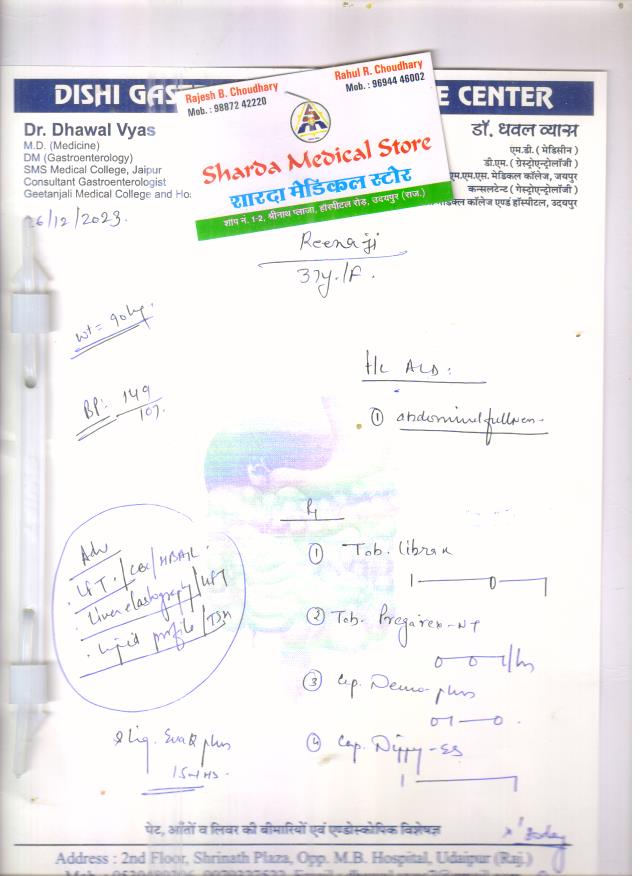 DISHI GAST
E CENTER
Rajesh B. Choudhary
Mob. : 98872 42220
Rahul R. Choudhary
Mob. : 96944 46002
Sharda Medical Store
शारदा मेडिकल स्टोर
शॉप नं. 1-2, श्रीनाथ प्लाजा, हॉस्पीटल रोड, उदयपुर (राज.)
Dr. Dhawal Vyas
M.D. (Medicine)
DM (Gastroenterology)
SMS Medical College, Jaipur
Consultant Gastroenterologist
Geetanjali Medical College and Ho
डॉ. धवल व्यास
एम.डी. ( मेडिसीन )
डी.एम. ( ग्रेस्ट्रोएन्ट्रोलॉजी )
एम.एम.एस. मेडिकल कॉलेज, जयपुर
कन्सलटेन्ट ( गेस्ट्रोएन्ट्रोलॉजी )
मेडिकल कॉलेज एण्ड हॉस्पीटल, उदयपुर
26/12/2023.
Reena ji
37y./F.
wt = 90kg.
H/o ALD:
BP: 149/107.
① abdominal fullness
Rx
Adv
LFT. / CBC / HBA1C
Liver elastography / KFT
Lipid profile / TSH
① Tab. Librax
1 0 1
② Tab. Pregarex-NT
0 0 1/hs
③ Cap. Demo-plus
0 1 0
④ Cap. Nippy-ES
1 1
Liq. EvaQ plus
15ml HS.
x 1 5 day
पेट, आँतों व लिवर की बीमारियों एवं एण्डोस्कोपिक विशेषज्ञ
Address : 2nd Floor, Shrinath Plaza, Opp. M.B. Hospital, Udaipur (Raj.)